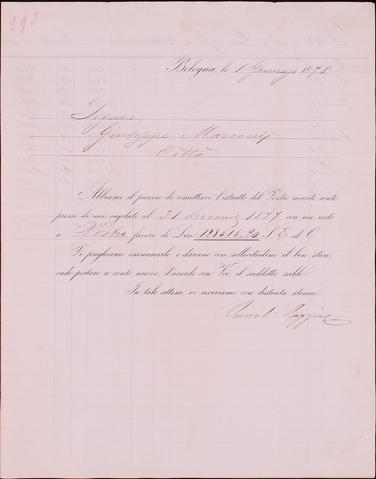 293
Bologna, li 1 Gennajo 1878.
Signor
Giuseppe Marconi
Città
Abbiamo il piacere di rimettervi l'estratto del Vostro riverito conto
presso di noi regolato al 31 dicembre 1877 con un resto
a Vostro favore di Lire S. E. od O.
Vi preghiamo esaminarlo, e darcene con sollecitudine il ben stare,
onde portare a conto nuovo, d'accordo con Voi, il suddetto saldo.
In tale attesa, vi riveriamo con distinta stima